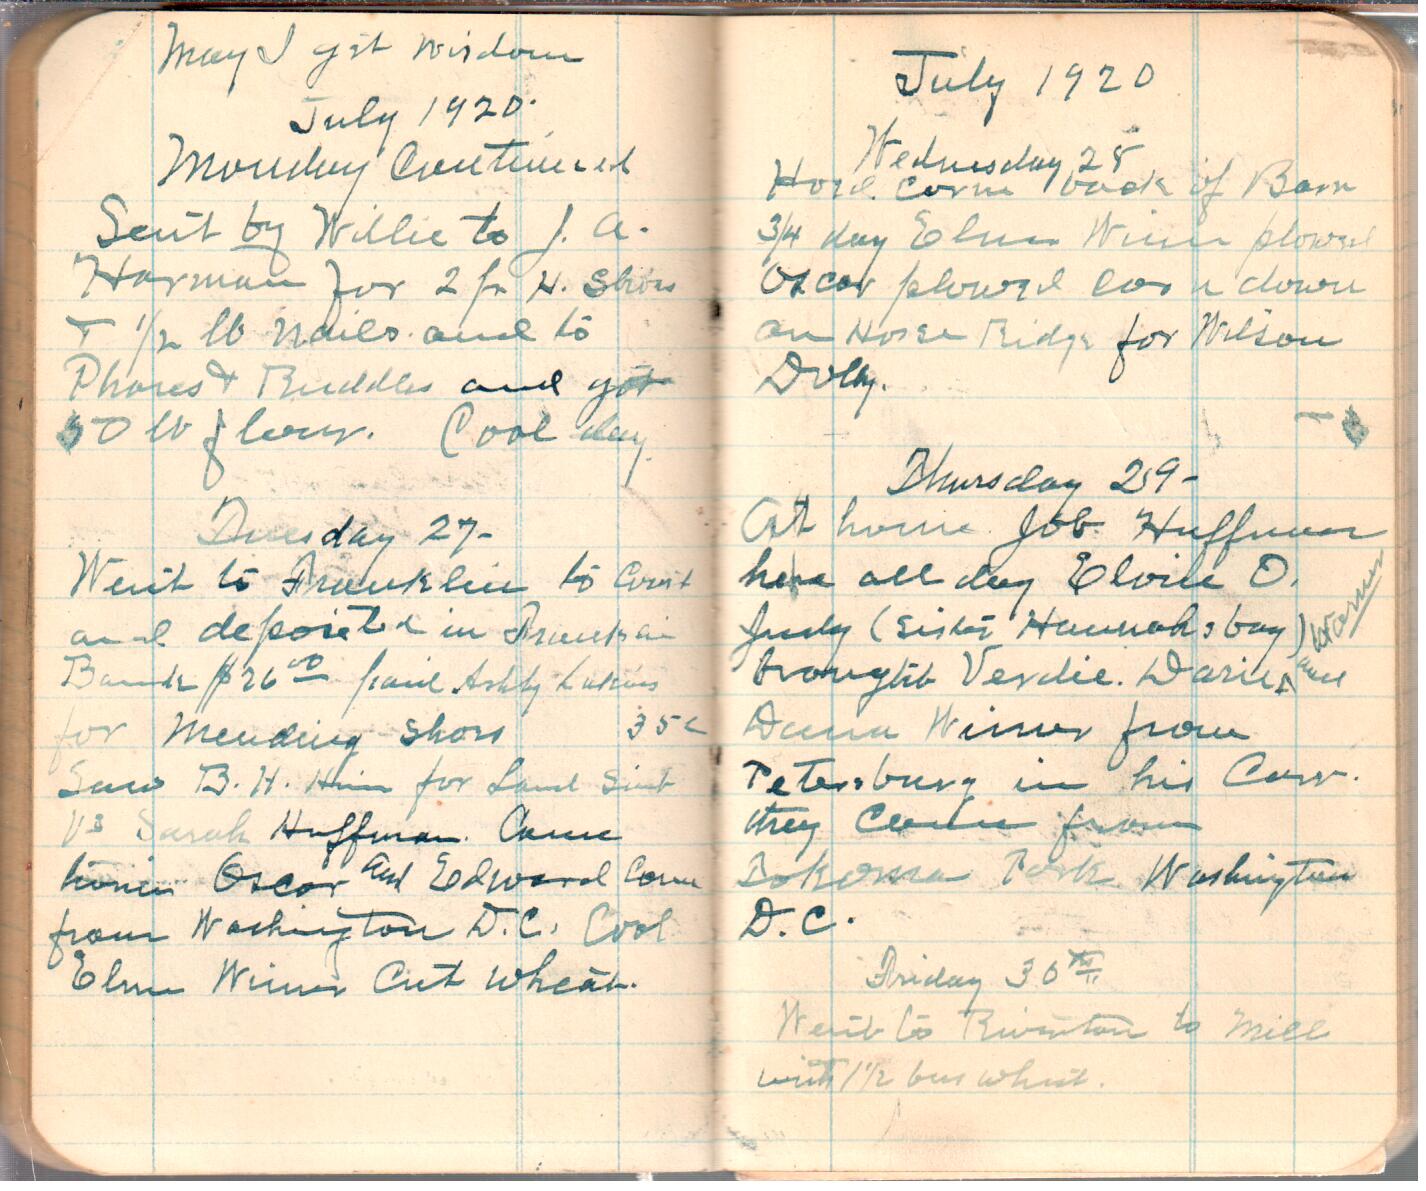 May I git wisdom
July 1920.
Monday Continued
Sent by Willie to J. A.
Harman for 2 pr H. Shoes
+ 1/2 lb nails. and to
Phares & Ruddles and got
50 lb flour. Cool day
Tuesday 27-
Went to Franklin to Court
and deposited in Franklin
Bank $26 00 paid Ashby
for Mending Shoes 35c
Saw B. H. Hiner for Land Suit
vs Sarah Huffman. Came
home Oscar and Edward Came
from Washington D.C. Cool
Elmer Wimer Cut Wheat.
July 1920
Wednesday 28
Hoed corne back of Barn
3/4 day Elmer Wimer plowed
Oscar plowed corn down
on Horse Ridge for Wilson
Dolly.
Thursday 29-
At home Job Huffman
here all day O.
Judy (Sister Hannahs boy)
brought Verdie. and Warner
Dama Wimer from
Petersburg in his Carr.
they Come from
Tokoma Park Washington
D.C.
Friday 30th
Went to Riverton to Mill
with 1 1/2 bus wheat.